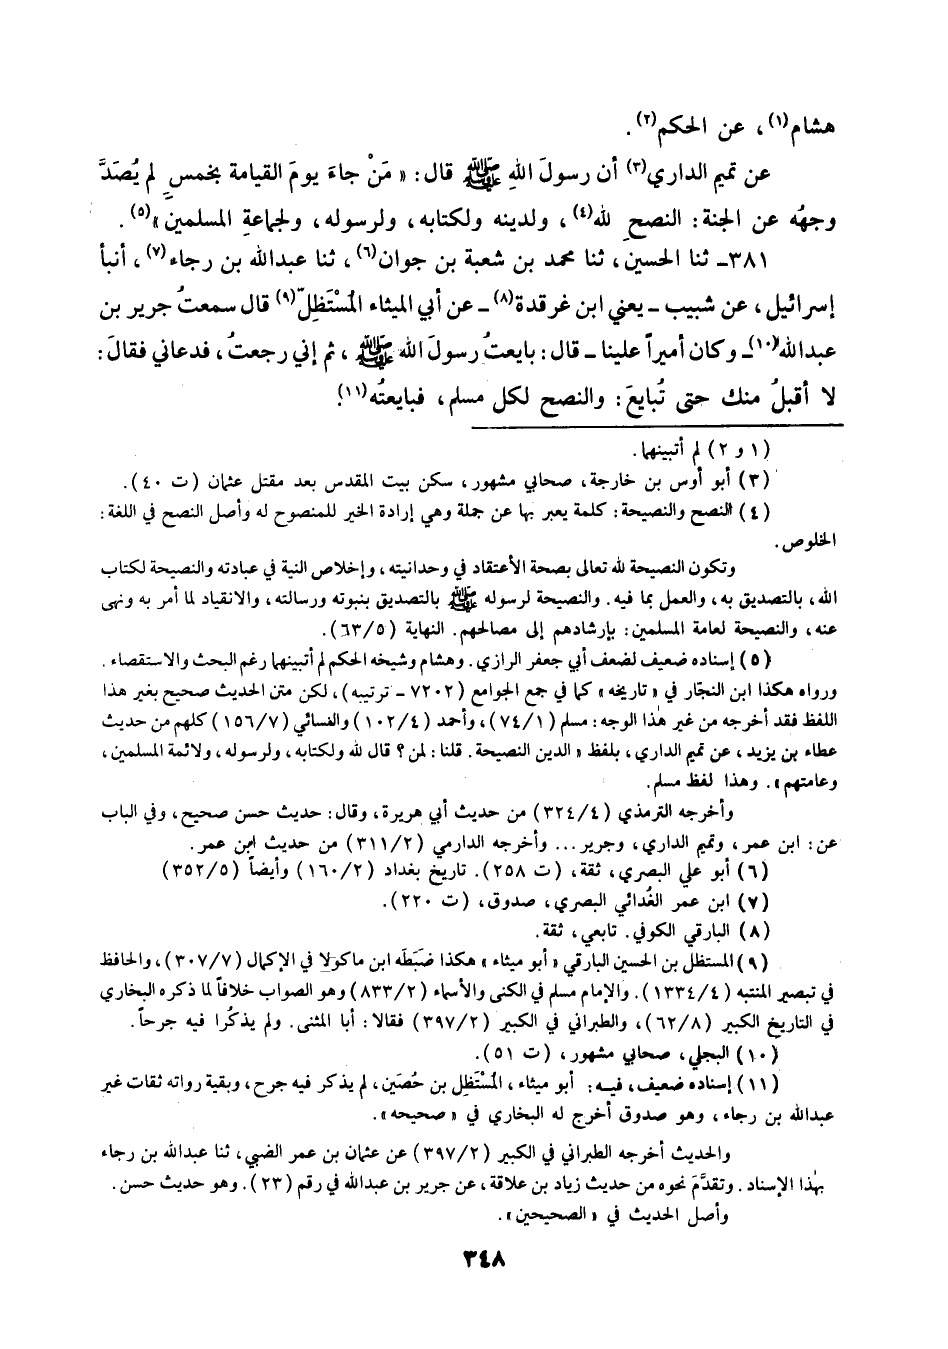 هشام(١)، عن الحكم(٢).
عن تميم الداري(٣) أن رسولَ اللهِ ﷺ قال: « مَنْ جاءَ يومَ القيامة بخمسٍ لم يُصَدَّ
وجهُه عن الجنة: النصحِ لله(٤)، ولدينه ولكتابه، ولرسوله، ولجماعةِ المسلمين »(٥).
٣٨١ـ ثنا الحسين، ثنا محمد بن شعبة بن جوان(٦)، ثنا عبدالله بن رجاء(٧)، أنبأ
إسرائيل، عن شبيب ـ يعني ابن غرقدة(٨) ـ عن أبي الميثاء المُسْتَظِلّ(٩) قال سمعتُ جرير بن
عبدالله(١٠)ـ وكان أميراً علينا ـ قال: بايعتُ رسولَ الله ﷺ، ثم إني رجعتُ، فدعاني فقالَ:
لا أقبلُ منك حتى تُبايعَ: والنصح لكل مسلم، فبايعتُه(١١).
(١ و ٢) لم أتبينهما.
(٣) أبو أوس بن خارجة، صحابي مشهور، سكن بيت المقدس بعد مقتل عثمان (ت ٤٠).
(٤) النصح والنصيحة: كلمة يعبر بها عن جملة وهي إرادة الخير للمنصوح له وأصل النصح في اللغة:
الخلوص.
وتكون النصيحة لله تعالى بصحة الأعتقاد في وحدانيته، وإخلاص النية في عبادته والنصيحة لكتاب
الله، بالتصديق به، والعمل بما فيه. والنصيحة لرسوله ﷺ بالتصديق بنبوته ورسالته، والانقياد لما أمر به ونهى
عنه، والنصيحة لعامة المسلمين: بإرشادهم إلى مصالحهم. النهاية (٦٣/٥).
(٥) إسناده ضعيف لضعف أبي جعفر الرازي. وهشام وشيخه الحكم لم أتبينهما رغم البحث والاستقصاء.
ورواه هكذا ابن النجّار في « تاريخه » كما في جمع الجوامع (٧٢٠٢ ـ ترتيبه)، لكن متن الحديث صحيح بغير هذا
اللفظ فقد أخرجه من غير هٰذا الوجه: مسلم (٧٤/١)، وأحمد (١٠٢/٤) والنسائي (١٥٦/٧) كلهم من حديث
عطاء بن يزيد، عن تميم الداري، بلفظ « الدين النصيحة. قلنا: لمن؟ قال لله ولكتابه، ولرسوله، ولائمة المسلمين،
وعامتهم ». وهذا لفظ مسلم.
وأخرجه الترمذي (٣٢٤/٤) من حديث أبي هريرة، وقال: حديث حسن صحيح، وفي الباب
عن: ابن عمر، وتميم الداري، وجرير... وأخرجه الدارمي (٣١١/٢) من حديث ابن عمر.
(٦) أبو علي البصري، ثقة، (ت ٢٥٨). تاريخ بغداد (١٦٠/٢) وأيضاً (٣٥٢/٥)
(٧) ابن عمر الغُدائي البصري، صدوق، (ت ٢٢٠).
(٨) البارقي الكوفي. تابعي، ثقة.
(٩) المستظل بن الحسين البارقي « أبو ميثاء » هكذا ضبَطَه ابن ماكولا في الإكمال (٣٠٧/٧)، والحافظ
في تبصير المنتبه (١٣٣٤/٤). والإمام مسلم في الكنى والأسماء (٨٣٣/٢) وهو الصواب خلافاً لما ذكره البخاري
في التاريخ الكبير (٦٢/٨)، والطبراني في الكبير (٣٩٧/٢) فقالا: أبا المثنى. ولم يذكُرا فيه جرحاً.
(١٠) البجلي، صحابي مشهور، (ت ٥١).
(١١) إسناده ضعيف، فيه: أبو ميثاء، المُسْتَظِل بن حُصَين، لم يذكر فيه جرح، وبقية رواته ثقات غير
عبدالله بن رجاء، وهو صدوق أخرج له البخاري في « صحيحه ».
والحديث أخرجه الطبراني في الكبير (٣٩٧/٢) عن عثمان بن عمر الضبي، ثنا عبدالله بن رجاء
بهٰذا الإسناد. وتقدَّمَ نحوه من حديث زياد بن علاقة، عن جرير بن عبدالله في رقم (٢٣). وهو حديث حسن.
وأصل الحديث في « الصحيحين ».
٣٤٨